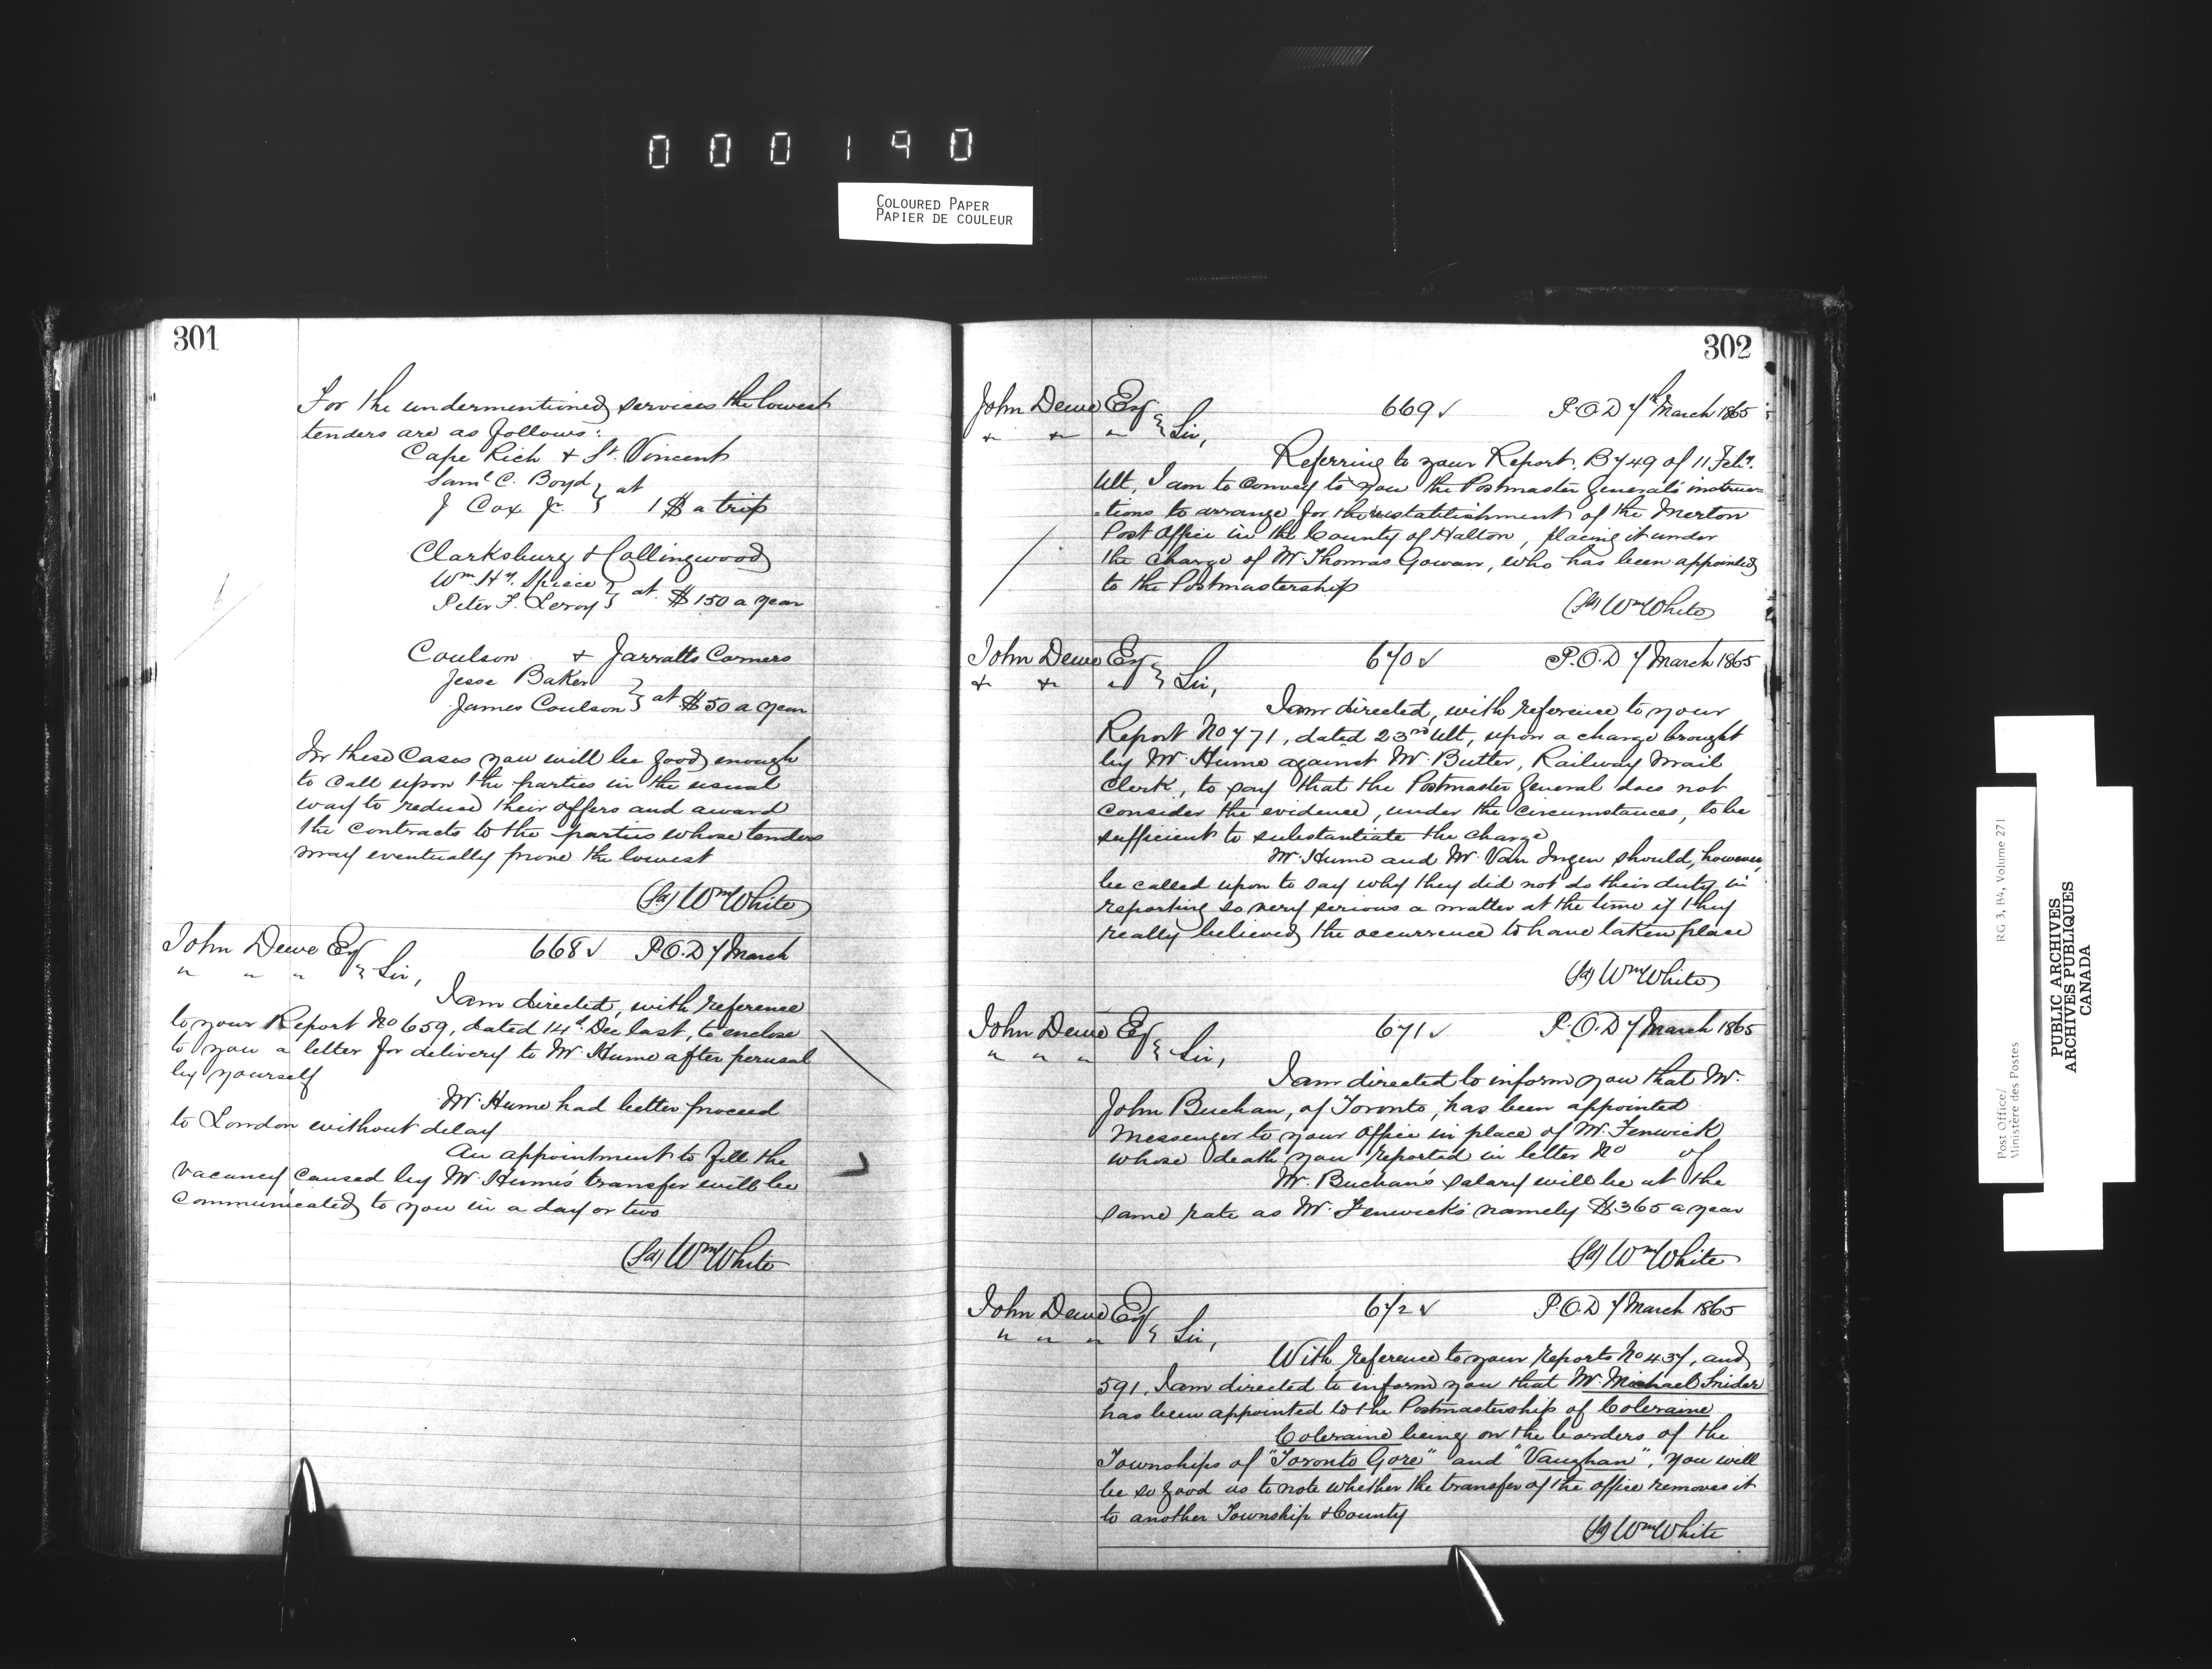 000190
COLOURED PAPER
PAPIER DE COULEUR
301
For the undermentioned services the lowest
tenders are as follows:
Cape Rich & St. Vincent
Saml C. Boyd } at
J Cox Jr. } 1 $ a trip
Clarksburg & Collingwood
Wm. Hy. Spiece } at $150 a year
Peter F. Leroy }
Coulson & Jarratts Corners
Jesse Baker } at $50 a year
James Coulson }
In these Cases you will be good enough
to call upon the parties in the usual
way to reduce their offers and award
the contracts to the parties whose tenders
may eventually prove the lowest
(Sd) Wm White
John Dewe Esq 668 ✓ P.O.D 7 March
" " " } Sir,
I am directed, with reference
to your Report No 659, dated 14th Dec last, to enclose
to you a letter for delivery to Mr. Hume after perusal
by yourself
Mr. Hume had better proceed
to London without delay
An appointment to fill the
vacancy caused by Mr. Hume's transfer will be
communicated to you in a day or two
(Sd) Wm White
302
John Dewe Esq 669 ✓ P.O.D 7th March 1865
" " " } Sir,
Referring to your Report. B 749 of 11 Feby.
Ult, I am to convey to you the Postmaster General's instruc=
=tions to arrange for the reestablishment of the Merton
Post Office in the County of Halton, placing it under
the charge of Mr. Thomas Gowan, who has been appointed
to the Postmastership
(Sd) Wm White
John Dewe Esq 670 ✓ P.O.D 7 March 1865
" " " } Sir,
I am directed, with reference to your
Report No 771, dated 23rd Ult, upon a charge brought
by Mr. Hume against Mr. Butler, Railway Mail
Clerk, to say that the Postmaster General does not
consider the evidence, under the circumstances, to be
sufficient to substantiate the charge
Mr. Hume and Mr. Van Ingen should, however,
be called upon to say why they did not do their duty in
reporting so very serious a matter at the time if they
really believed the occurrence to have taken place
(Sd) Wm White
John Dewe Esq 671 ✓ P.O.D 7 March 1865
" " " } Sir,
I am directed to inform you that Mr.
John Buchan, of Toronto, has been appointed
Messenger to your Office in place of Mr. Fenwick
whose death you reported in letter No of
Mr. Buchan's salary will be at the
same rate as Mr. Fenwick's namely $365 a year
(Sd) Wm White
John Dewe Esq 672 ✓ P.O.D 7 March 1865
" " " } Sir,
With reference to your reports No 437, and
591, I am directed to inform you that Mr. Michael Snider
has been appointed to the Postmastership of Coleraine
Coleraine being on the borders of the
Townships of "Toronto Gore" and "Vaughan", you will
be so good as to note whether the transfer of the office removes it
to another Township & County
(Sd) Wm White
Post Office/ RG 3, B4, Volume 271
Ministère des Postes
PUBLIC ARCHIVES
ARCHIVES PUBLIQUES
CANADA